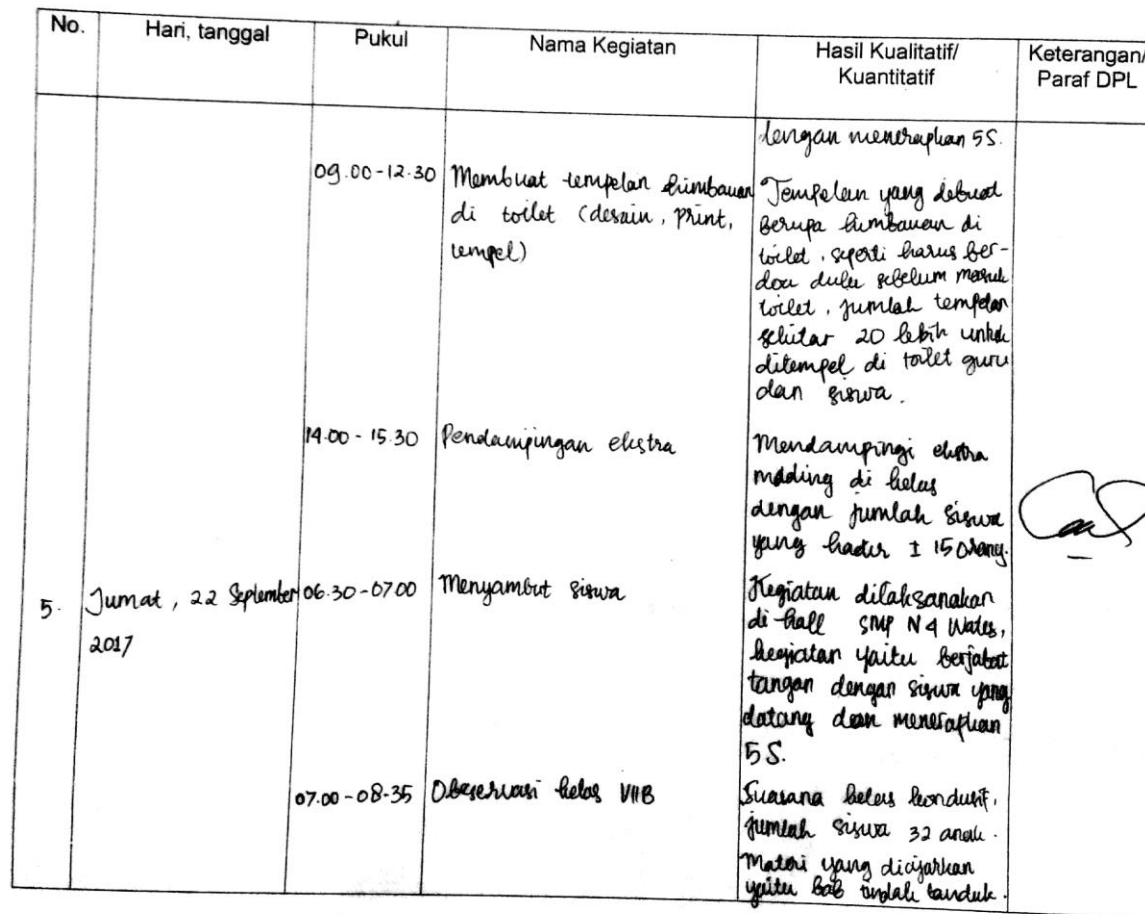 No.
Hari, tanggal
Pukul
Nama Kegiatan
Hasil Kualitatif/
Kuantitatif
Keterangan/
Paraf DPL
dengan menerapkan 5S.
09.00-12.30
Membuat tempelan himbauan
di toilet (desain, print,
tempel)
Tempelan yang dibuat
berupa himbauan di
toilet, seperti harus ber-
doa dulu sebelum masuk
toilet, jumlah tempelan
sekitar 20 lebih untuk
ditempel di toilet guru
dan siswa.
14.00 - 15.30
Pendampingan ekstra
Mendampingi ekstra
mading di kelas
dengan jumlah siswa
yang hadir ± 15 orang.
5.
Jumat, 22 September
2017
06.30-07.00
Menyambut siswa
Kegiatan dilaksanakan
di hall SMP N 4 Wates,
kegiatan yaitu berjabat
tangan dengan siswa yang
datang dan menerapkan
5S.
07.00-08.35
Observasi kelas VIIB
Suasana kelas kondusif,
jumlah siswa 32 anak.
Materi yang diajarkan
yaitu bab tindak tanduk.